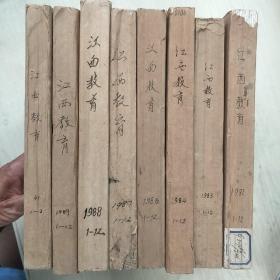 江西教育
1-2
江西教育
1989
1-12
江西教育
1988
1-12
江西教育
1987
1-12
江西教育
1986
1-12
江西教育
1984
1-12
江西教育
1983
1-12
江西教育
1-12